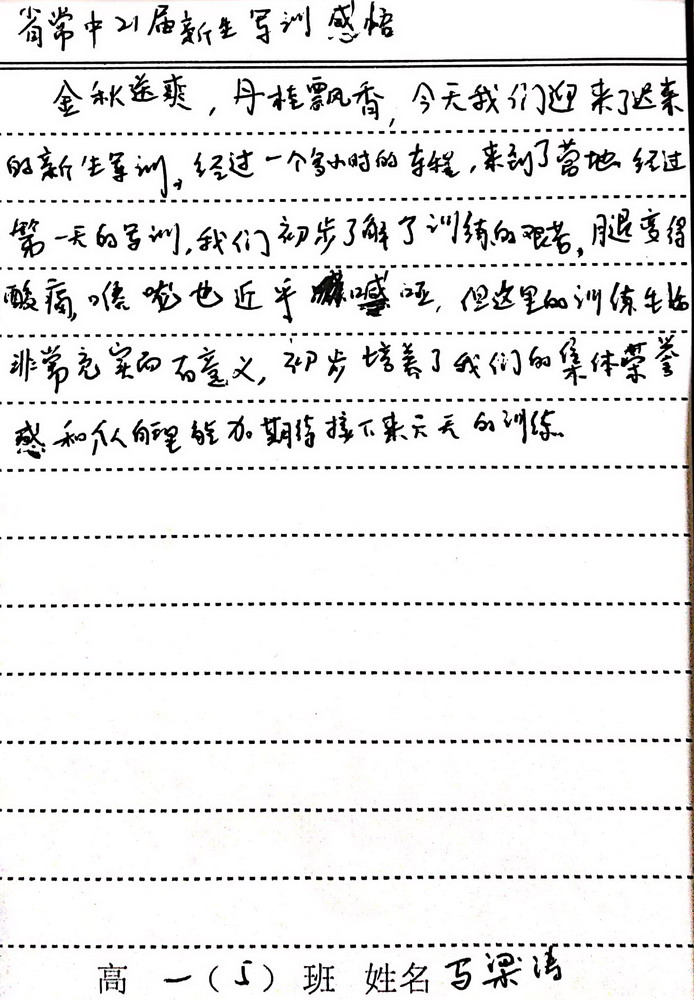 省常中21届新生军训感悟
金秋送爽，丹桂飘香，今天我们迎来了迟来
的新生军训，经过一个多小时的车程，来到了营地 经过
第一天的军训，我们初步了解了训练的艰苦，腿变得
酸痛，喉咙也近乎喊哑，但这里的训练生活
非常充实而有意义，初步培养了我们的集体荣誉
感和个人自理能力 期待接下来几天的训练
高一（5）班 姓名 马梁涛